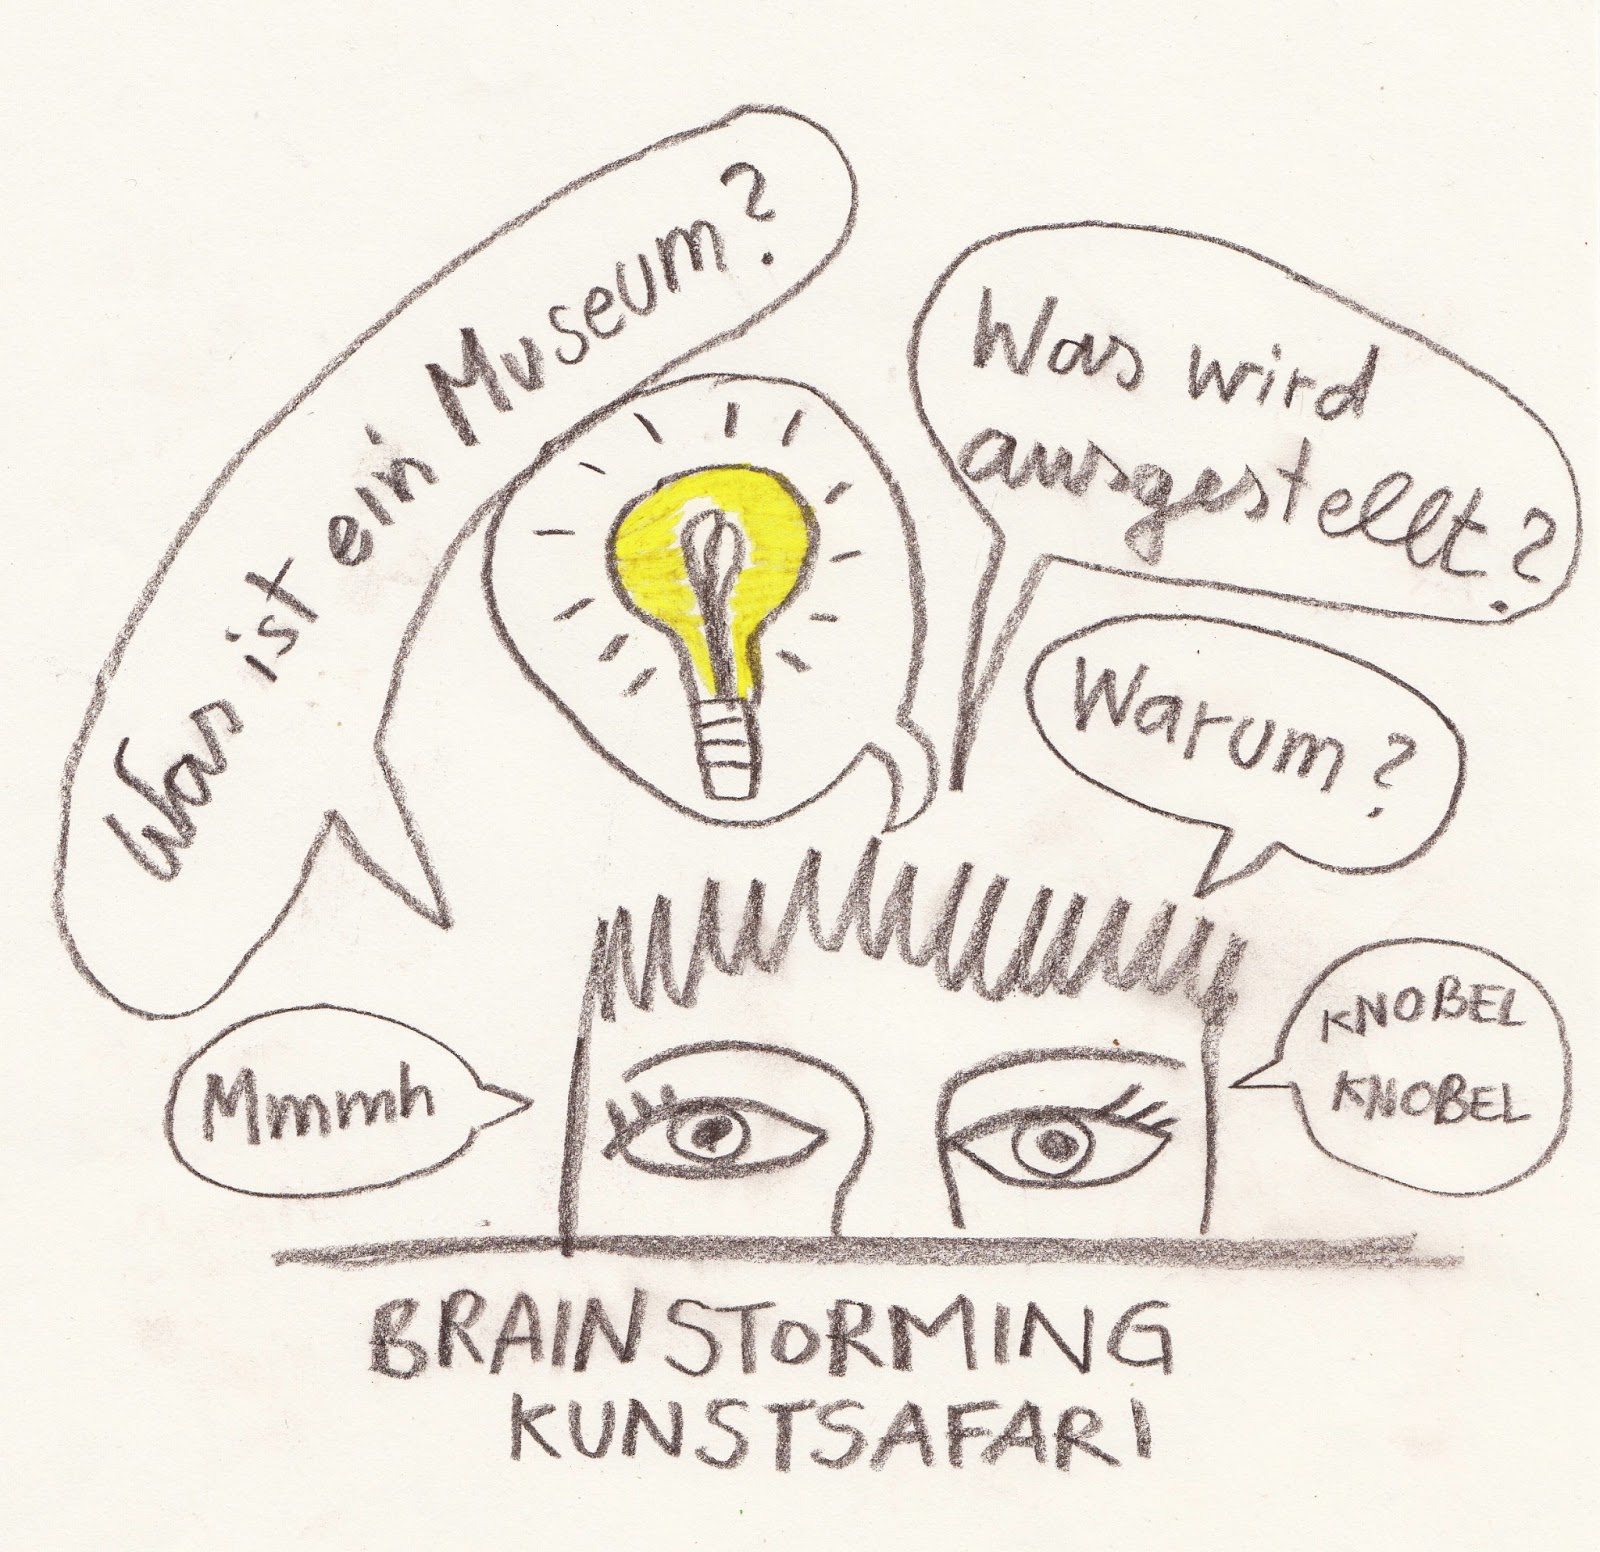 Was ist ein Museum?
Was wird
ausgestellt?
Warum?
Mmmmh
KNOBEL
KNOBEL
BRAINSTORMING
KUNSTSAFARI